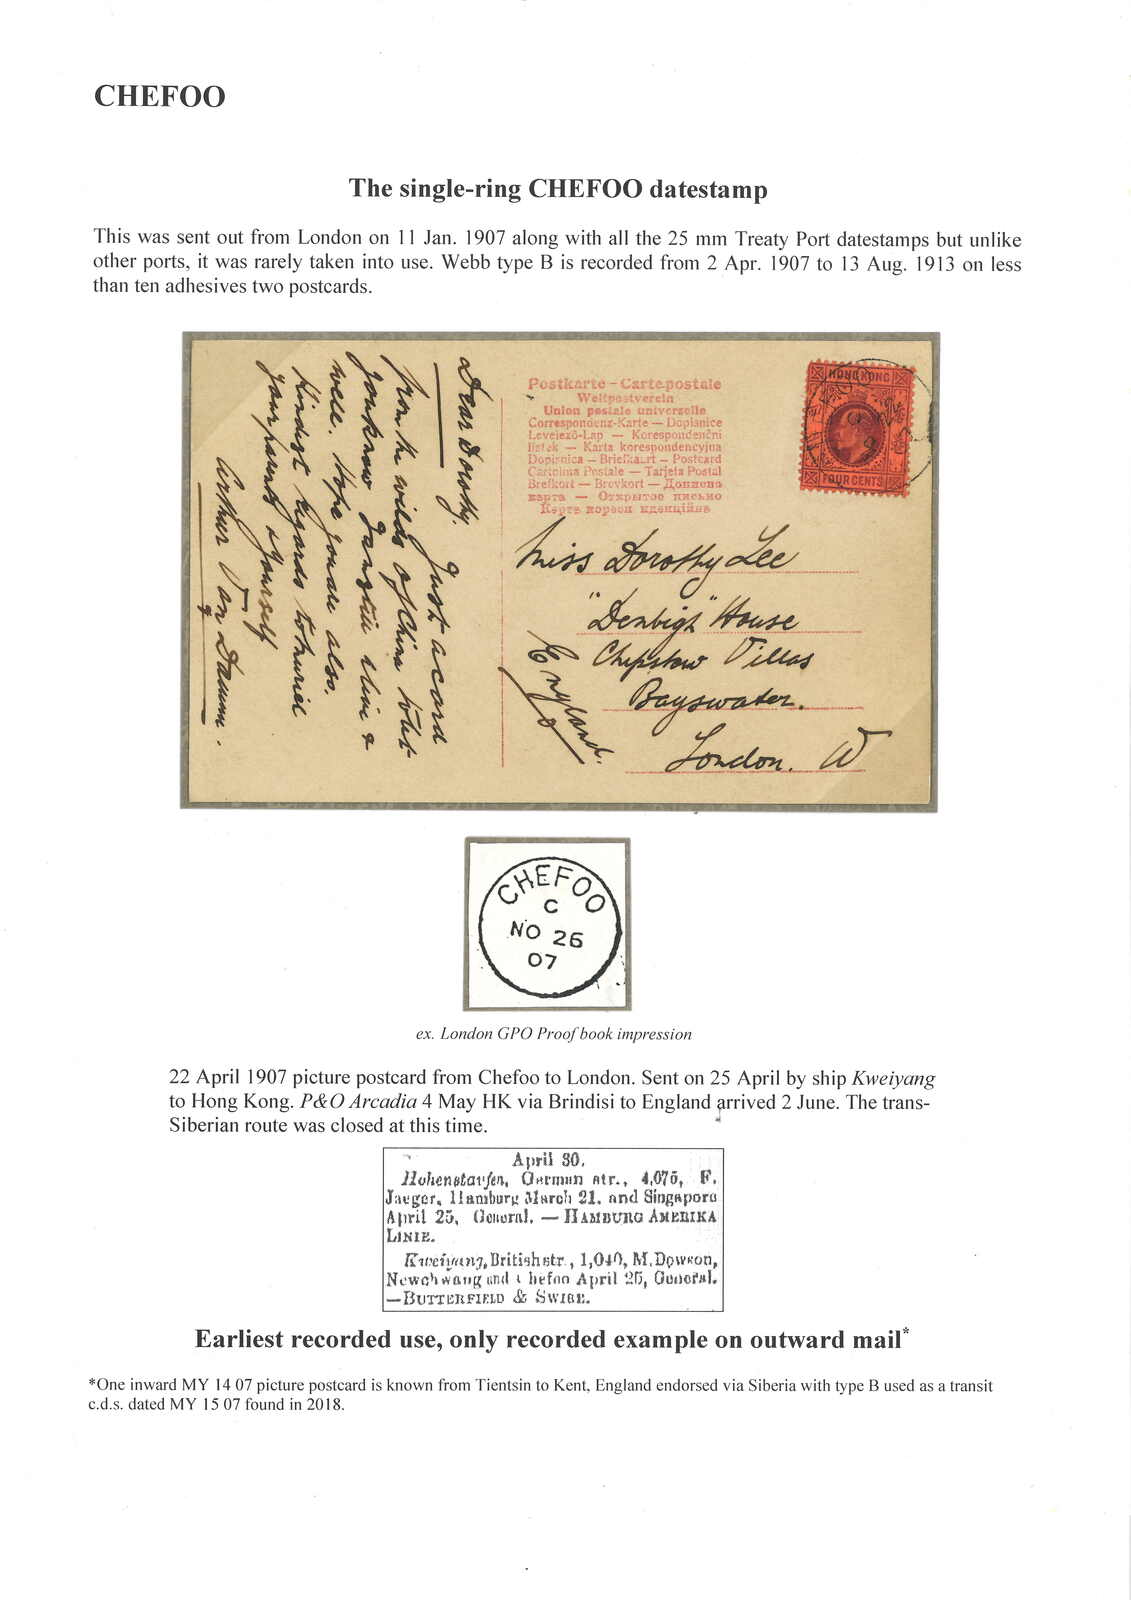 CHEFOO
The single-ring CHEFOO datestamp
This was sent out from London on 11 Jan. 1907 along with all the 25 mm Treaty Port datestamps but unlike
other ports, it was rarely taken into use. Webb type B is recorded from 2 Apr. 1907 to 13 Aug. 1913 on less
than ten adhesives two postcards.
Dear Dorothy.
Just a card
from the wilds of China to let
you know I am still alive &
well. Hope you are also.
Kindest regards to Muriel
your parents & yourself
Arthur Van Damm.
Postkarte – Carte postale
Weltpostverein
Union postale universelle
Correspondenz-Karte — Dopisnice
Levelező-Lap — Korespondenční
lístek — Karta korespondencyjna
Dopisnica — Briefkaart — Postcard
Cartolina Postale — Tarjeta Postal
Brefkort — Brevkort — Дописна
карта — Открытое письмо
HONG KONG
FOUR CENTS
Miss Dorothy Lee
"Denbigh" House
Chepstow Villas
Bayswater.
London. W
England.
CHEFOO
C
NO 26
07
ex. London GPO Proof book impression
22 April 1907 picture postcard from Chefoo to London. Sent on 25 April by ship Kweiyang
to Hong Kong. P&O Arcadia 4 May HK via Brindisi to England arrived 2 June. The trans-
Siberian route was closed at this time.
April 30.
Hohenstaufen, German str., 4,075, F.
Jaeger, Hamburg March 21, and Singapore
April 25, General. — HAMBURG AMERIKA
LINIE.
Kweiyang, British str., 1,040, M. Dowson,
Newchwang and Chefoo April 25, General.
—BUTTERFIELD & SWIRE.
Earliest recorded use, only recorded example on outward mail*
*One inward MY 14 07 picture postcard is known from Tientsin to Kent, England endorsed via Siberia with type B used as a transit
c.d.s. dated MY 15 07 found in 2018.